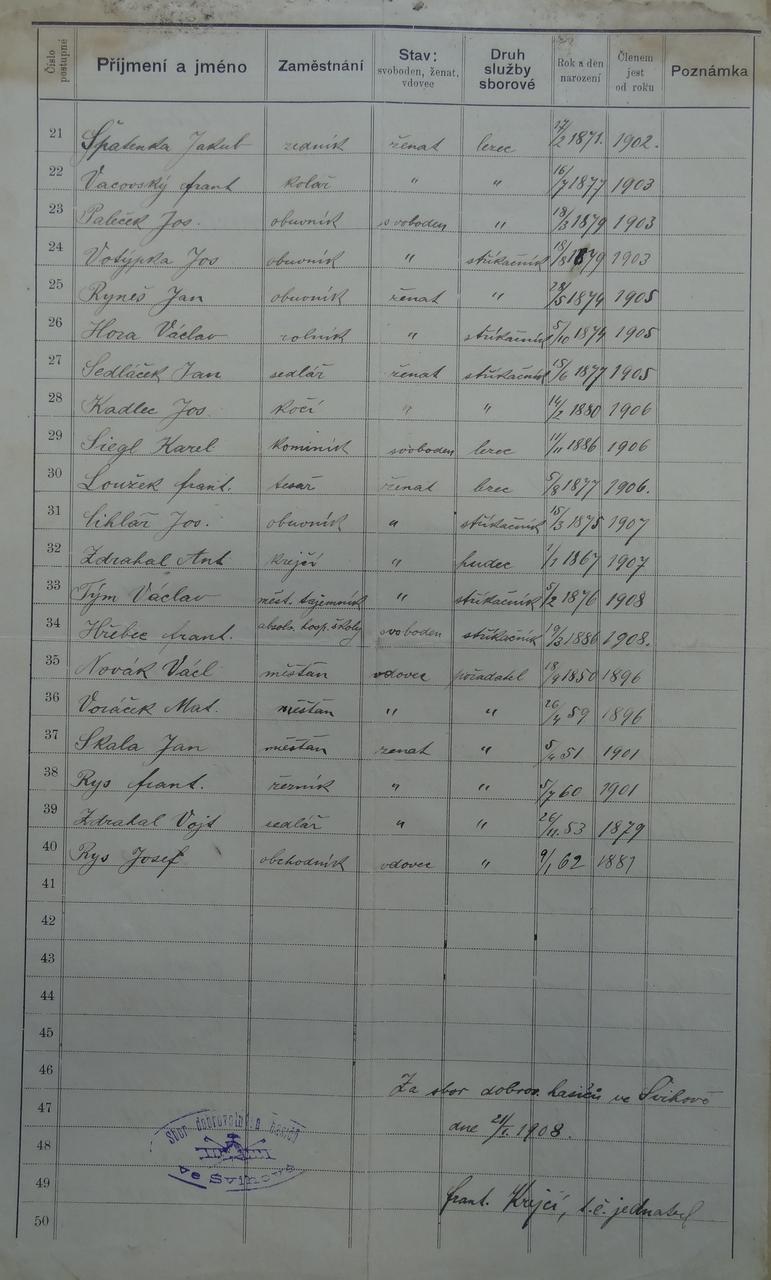 Číslo postupné Příjmení a jméno Zaměstnání Stav: svoboden, ženat, vdovec Druh služby sborové Rok a den narození Členem jest od roku Poznámka
21 Špatenka Jakub zedník ženat lezec 17/2 1871. 1902.
22 Vacovský frant kolář " " 16/7 1877 1903
23 Paleček Jos. obuvník svoboden " 18/3 1879 1903
24 Votýpka Jos obuvník " stříkačník 18/8 1879 1903
25 Ryneš Jan obuvník ženat " 28/5 1874 1905
26 Hora Václav rolník " stříkačník 5/10 1874 1905
27 Sedláček Jan sedlář ženat stříkačník 15/6 1877 1905
28 Kadlec Jos kočí " " 14/2 1880 1906
29 Siegl Karel kominík svoboden lezec 11/11 1886 1906
30 Loužek frant. tesař ženat lezec 5/8 1877 1906.
31 Cihlář Jos. obuvník " stříkačník 15/3 1875 1907
32 Zdrahal Ant krejčí " hudec 1/1 1867 1907
33 Tým Václav měst. tajemník " stříkačník 5/2 1876 1908
34 Hřebec frant. absolv. hosp. školy svoboden stříkačník 19/3 1886 1908.
35 Novák Václ měšťan vdovec pořadatel 18/9 1850 1896
36 Voráček Mat. měšťan " " 26/4 59 1896
37 Skala Jan měšťan ženat " 5/4 51 1901
38 Rys frant. řezník " " 5/7 60 1901
39 Zdrahal Vojt sedlář " " 26/11 53 1879
40 Rys Josef obchodník vdovec " 9/1 62 1881
41
42
43
44
45
46
Za sbor dobrov. hasičů ve Švihově
47
dne 21/1. 1908.
Sbor dobrovolných hasičů
48
ve Švihově
49
frant. Krejčí, t. č. jednatel
50